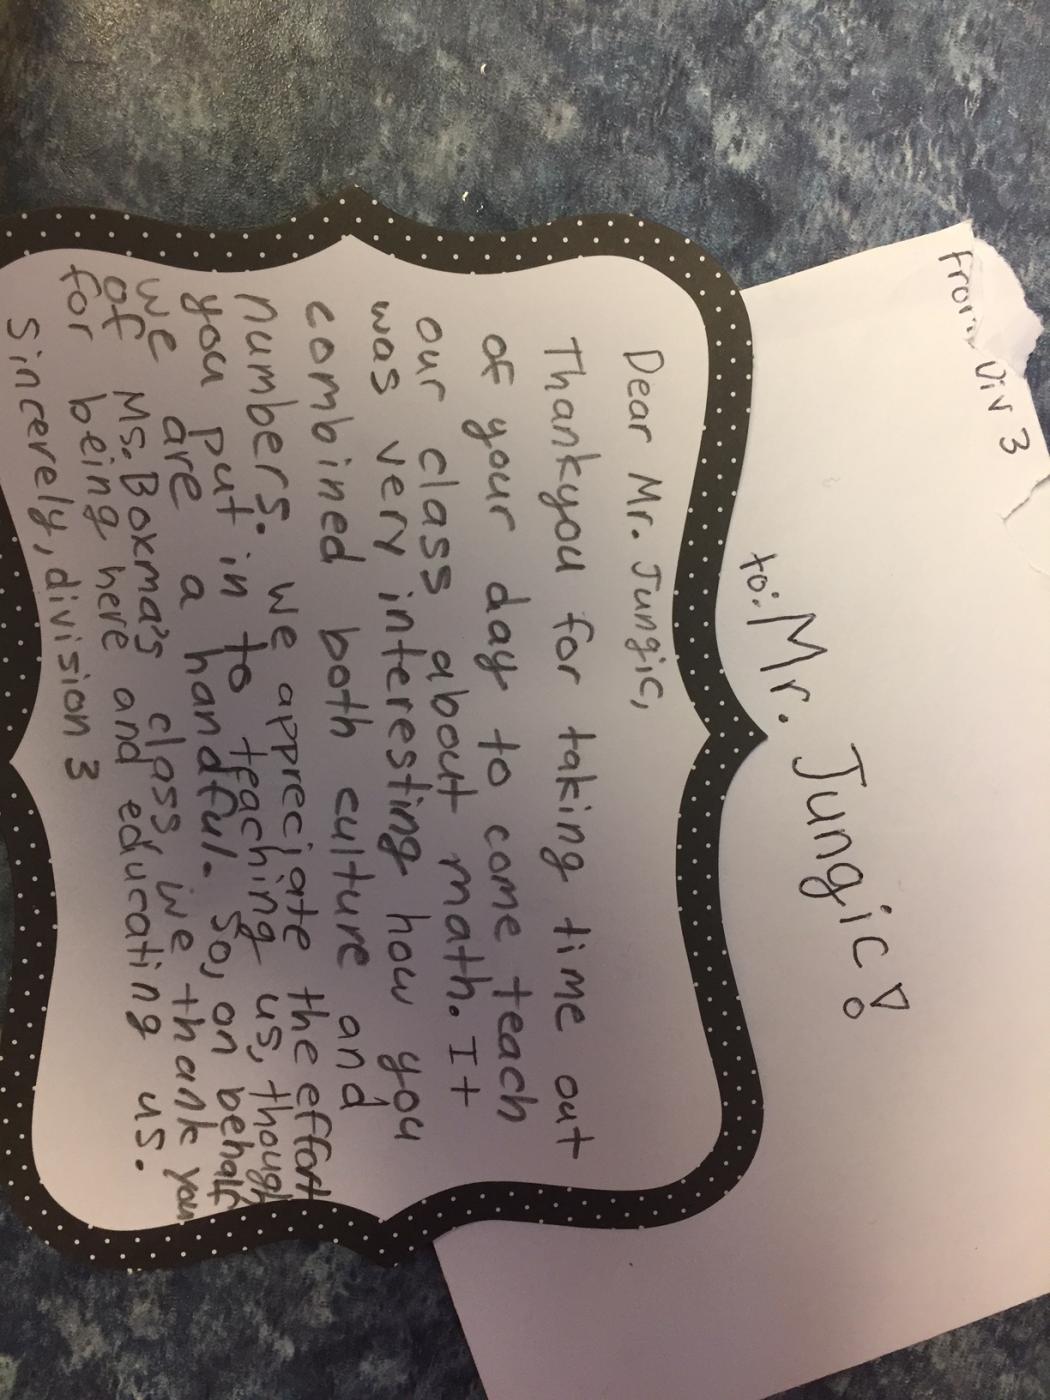 From Div 3
to: Mr. Jungic!
Dear Mr. Jungic,
Thankyou for taking time out
of your day to come teach
our class about math. It
was very interesting how you
combined both culture and
numbers. we appreciate the effort
you put in to teaching us, though
we are a handful. So, on behalf
of Ms. Boxma's class we thank you
for being here and educating us.
Sincerely, division 3